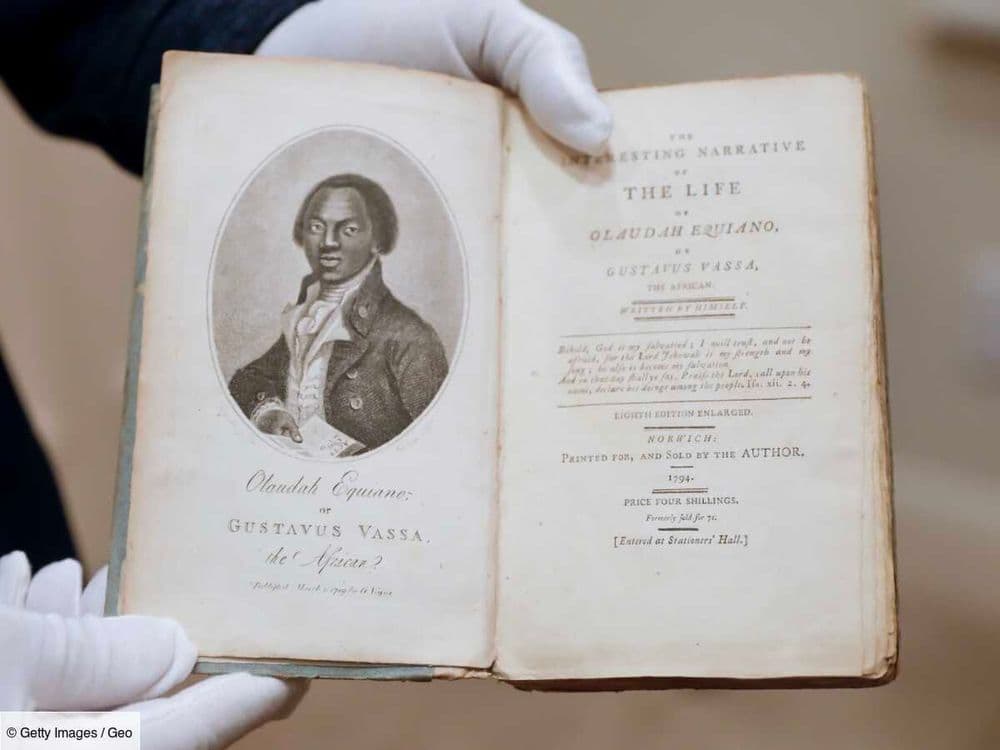 Olaudah Equiano;
or
GUSTAVUS VASSA,
the African?
Published March 1 1789 by G. Vassa
THE
INTERESTING NARRATIVE
OF
THE LIFE
OF
OLAUDAH EQUIANO,
OR
GUSTAVUS VASSA,
THE AFRICAN.
WRITTEN BY HIMSELF.
Behold, God is my salvation; I will trust, and not be
afraid, for the Lord Jehovah is my strength and my
song; he also is become my salvation.
And in that day shall ye say, Praise the Lord, call upon his
name, declare his doings among the people. Isa. xii. 2. 4.
EIGHTH EDITION ENLARGED.
NORWICH:
PRINTED FOR, AND SOLD BY THE AUTHOR.
1794.
PRICE FOUR SHILLINGS.
Formerly sold for 7s.
[Entered at Stationers' Hall.]
© Getty Images / Geo